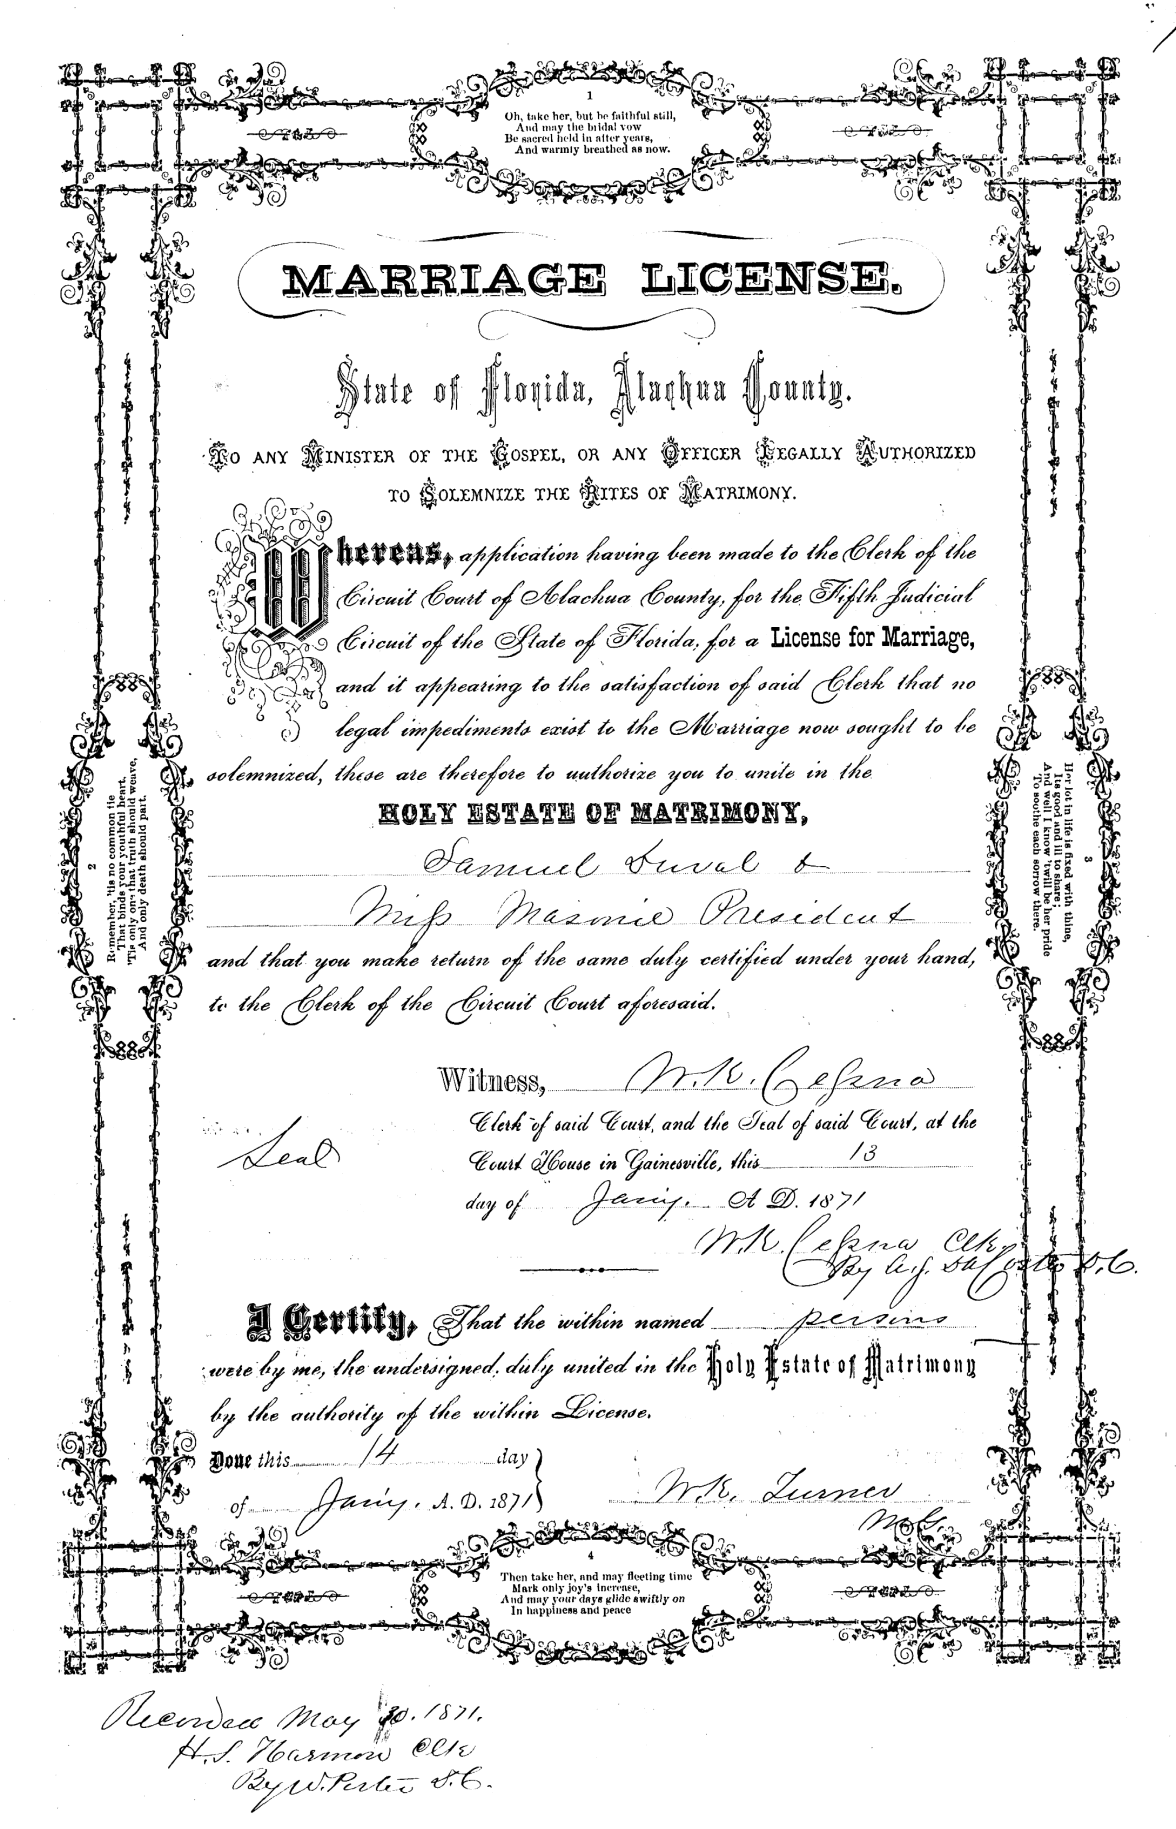 1
Oh, take her, but be faithful still,
And may the bridal vow
Be sacred held in after years,
And warmly breathed as now.
MARRIAGE LICENSE.
State of Florida, Alachua County.
TO ANY MINISTER OF THE GOSPEL, OR ANY OFFICER LEGALLY AUTHORIZED
TO SOLEMNIZE THE RITES OF MATRIMONY.
Whereas, application having been made to the Clerk of the
Circuit Court of Alachua County, for the Fifth Judicial
Circuit of the State of Florida, for a License for Marriage,
and it appearing to the satisfaction of said Clerk that no
legal impediments exist to the Marriage now sought to be
solemnized, these are therefore to authorize you to unite in the
HOLY ESTATE OF MATRIMONY,
Samuel Duval &
Miss Masonie President
and that you make return of the same duly certified under your hand,
to the Clerk of the Circuit Court aforesaid.
2
Remember, 'tis no common tie
That binds your youthful heart,
'Tis only one that truth should weave,
And only death should part.
3
Her lot in life is fixed with thine,
Its good and ill to share;
And well I know 'twill be her pride
To soothe each sorrow there.
Witness, W.K. Cessna
Clerk of said Court, and the Seal of said Court, at the
Seal
Court House in Gainesville, this 13
day of Jany. A D. 1871
W.K. Cessna Clk
By A.J. DaCosta D.C.
I Certify, That the within named persons
were by me, the undersigned, duly united in the Holy Estate of Matrimony
by the authority of the within License.
Done this 14 day
of Jany. A. D. 1871
W.K. Turner
M.G.
4
Then take her, and may fleeting time
Mark only joy's increase,
And may your days glide swiftly on
In happiness and peace
Recorded May 30. 1871.
H.S. Harmon Clk
By W. Porter D.C.